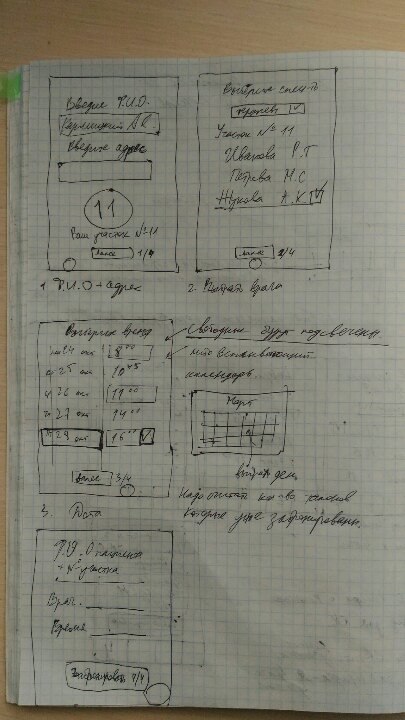 Введите Ф.И.О.
Введите адрес
11
Ваш участок №11
далее 1/4
1. Ф.И.О + адрес
Выберите спец-та
терапевт
Участок № 11
Иванова Р.Г
Петрова М.С
Жукова А.К
далее 2/4
2. Выбрать врача
Выберите время
пн 24 окт 8 00
вт 25 окт 10 45
ср 26 окт 11 00
чт 27 окт 14 00
пт 28 окт 16 00
далее 3/4
3. Дата
Свободные будут подсвечены.
либо всплывающий
календарь
Март
выбрать день
Надо считать кол-во талонов
которые уже забронированы.
Ф.И.О пациента
+ № участка
Врач
Время
Забронировать 4/4